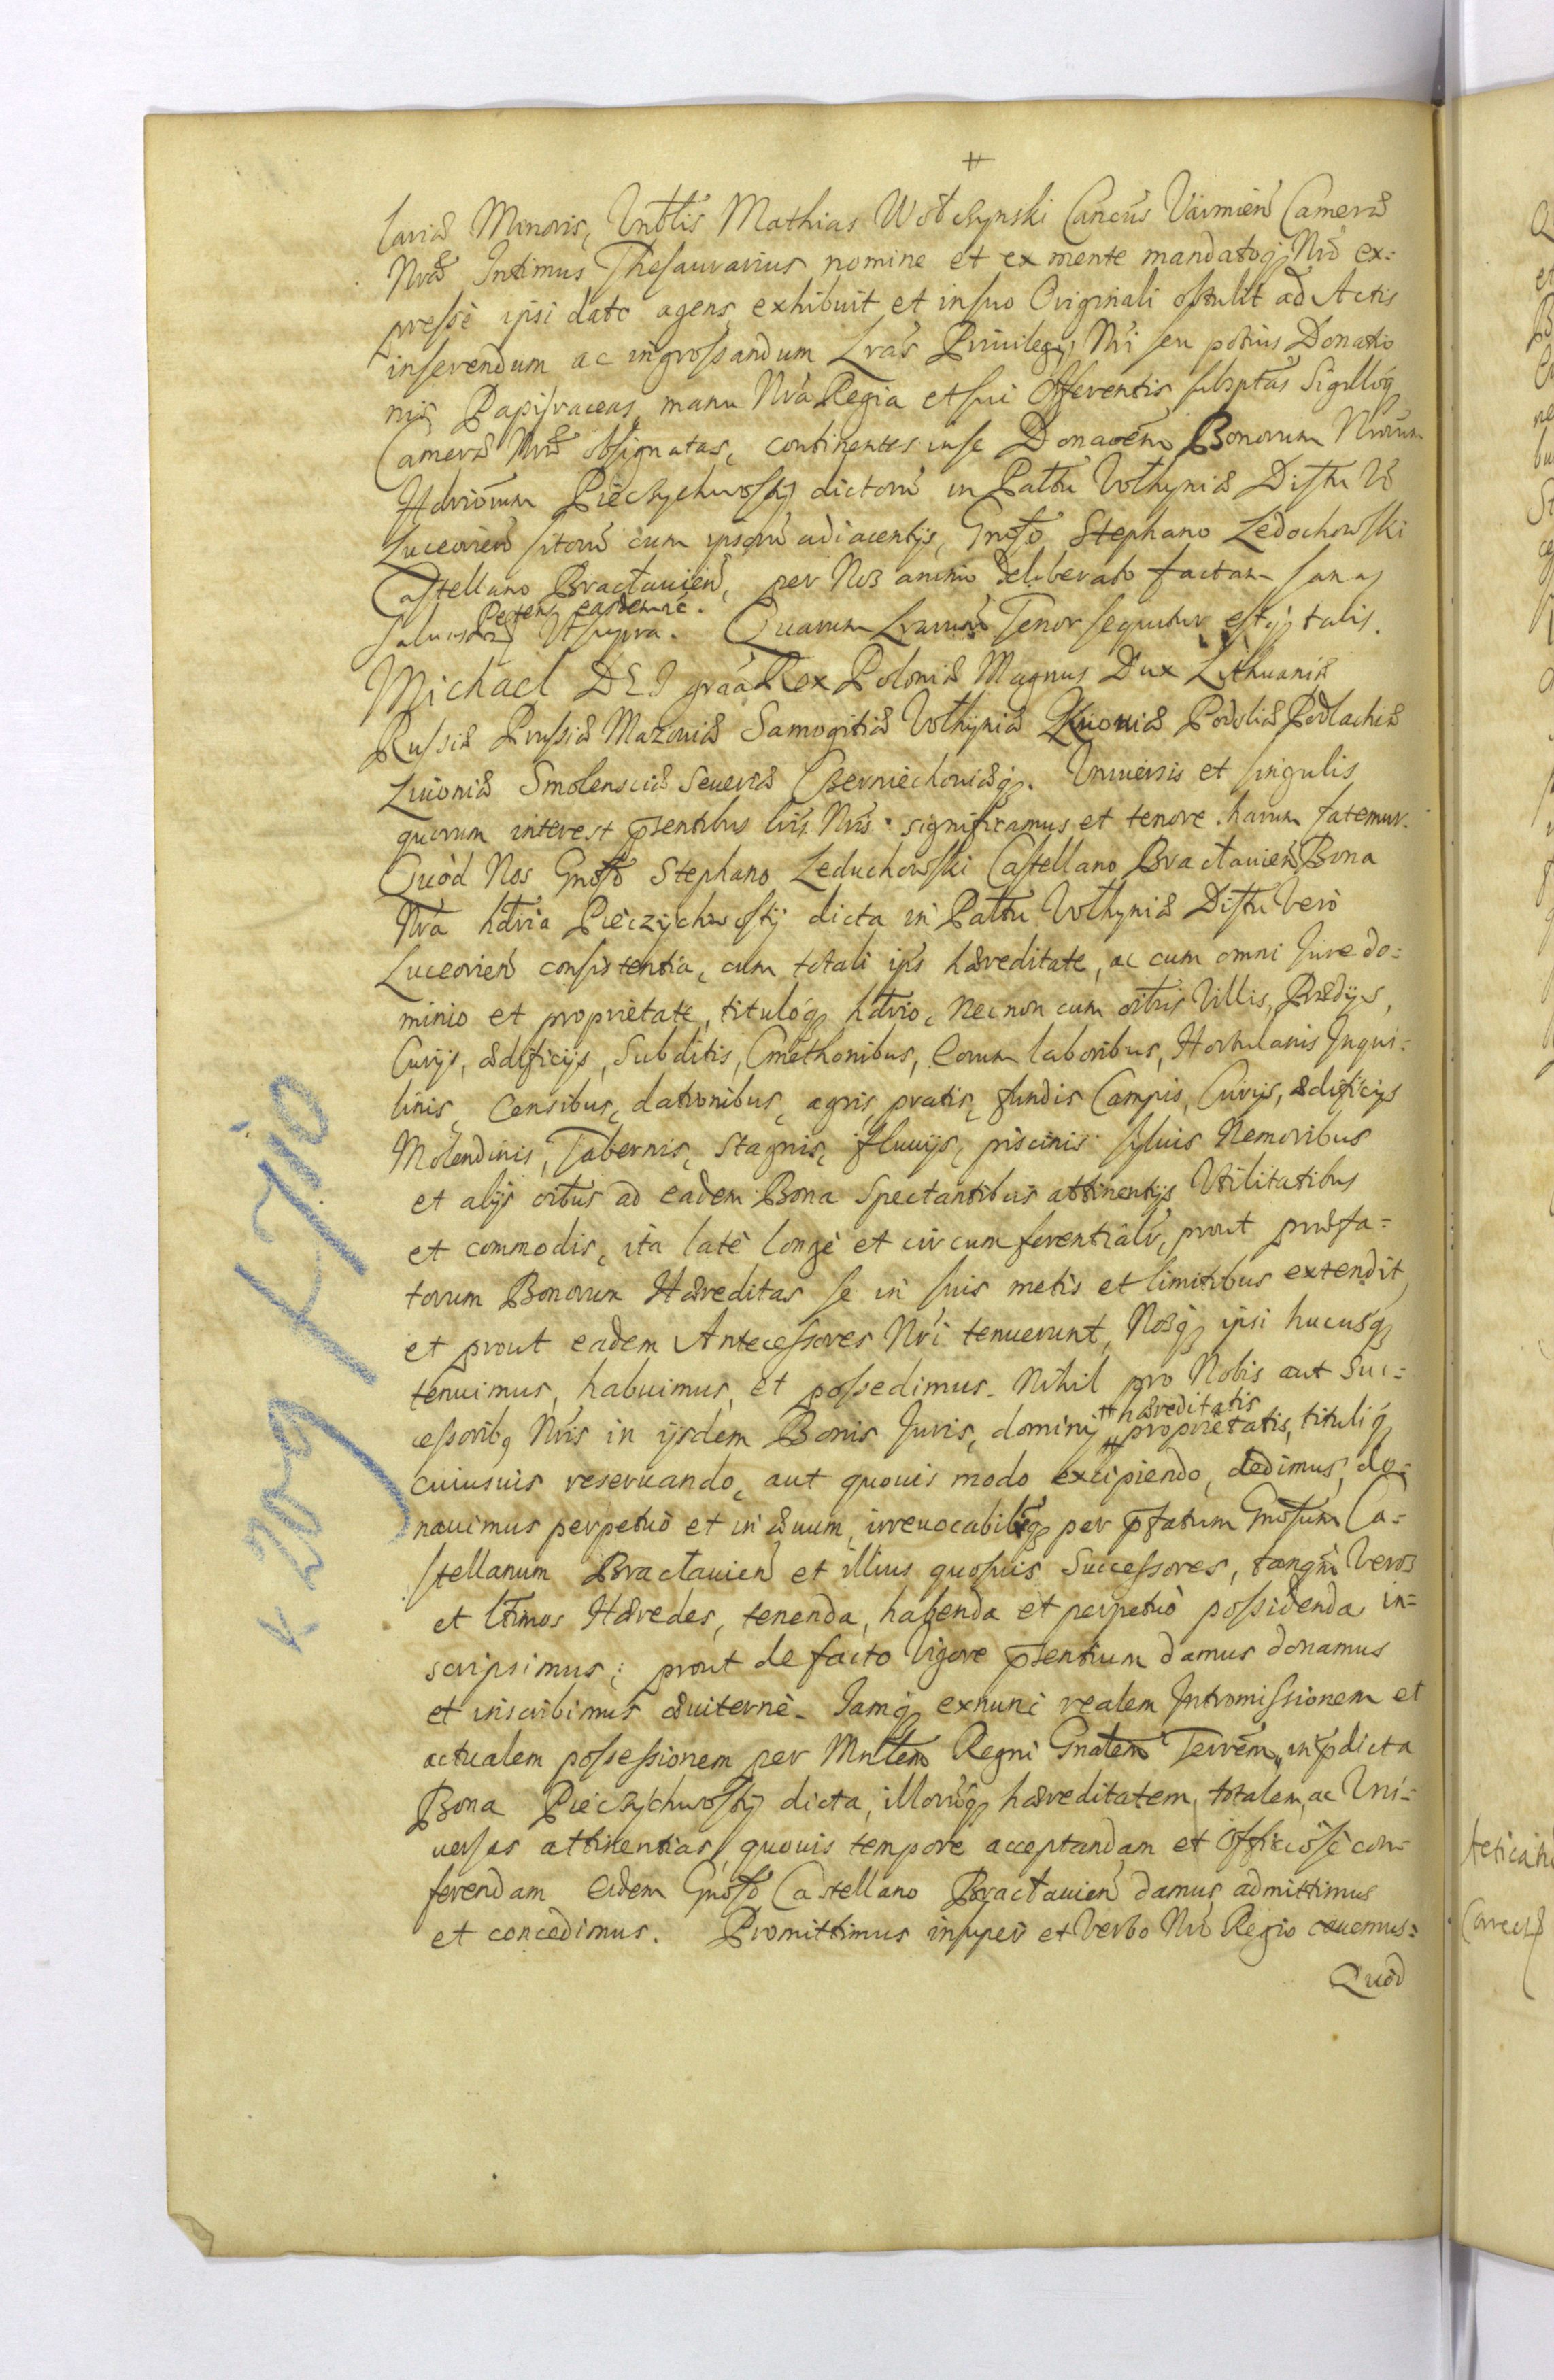 ‡
lariæ Minoris, Vnblis Mathias Wołczynski Cancus Varmien Cameræ
Nræ Intimus Thesaurarius nomine et ex mente mandatoq Nro ex=
presse ipsi dato agens, exhibuit et in suo Originali obtulit ad Actis
inserendum ac ingrossandum Lras Priuilegij Nri seu potius Donatio
nis Papiraceas, manu Nra Regia et sui Offerentis subsptas Sigilloq
Cameræ Nræ obsignatas, continentes in se Donaoem Bonorum Nrorum
Hdriorum Pieczychwosty dictoru in Pattu Volhyniæ Distu Vo
Luceorien sitoru cum ipsoru adiacentijs, Gnoso Stephano Ledochowski
Castellano Bractauien, per Nos animo deliberato factam sanas
Petens easdem &c.
saluas Vt supra. Quarum Lrarum Tenor sequitur estq talis.
Michael DEI graa Rex Poloniæ Magnus Dux Lithuaniæ
Russiæ Prussiæ Mazouiæ Samogitiæ Volhyniæ Kiiouiæ Podoliæ Podlachiæ
Liuoniæ Smolensciæ Seueriæ Czerniechouiæq. Vniuersis et singulis
quorum interest pntibus lris Nris significamus et tenore harum fatemur.
Quòd Nos Gnoso Stephano Leduchowski Castellano Bractauien Bona
Nra hdria Pieczychwosty dicta in Pattu Volhyniæ Distu Vero
Luceorien consistentia, cum totali ips hæreditate, ac cum omni Jure do=
minio et proprietate, tituloq hdrio, nec non cum oibus Villis, Prædijs,
Curijs, ædificijs, Subditis, Cmethonibus, Eorum laboribus, Hortulanis Inqui=
linis, Censibus, dationibus, agris, pratis, fundis Campis, Curijs, ædificijs
Molendinis, Tabernis, Stagnis, fluuijs, piscinis syluis Nemoribus
et alijs oibus ad eadem Bona Spectantibus attinentijs Vtilitatibus
et commodis, ita latè longè et circumferentialr, prout præfa=
torum Bonorum Hæreditas se in suis metis et limitibus extendit,
et prout eadem Antecessores Nri tenuerunt, Nosq ipsi hucusq
tenuimus, habuimus, et possedimus. Nihil pro Nobis aut Suc=
‡ hæreditatis
cessoribq Nris in ijsdem Bonis Juris, dominij ‡ proprietatis, tituliq
cuiusuis reseruando, aut quouis modo excipiendo, dedimus, do=
nauimus perpetuò et in æuum, irreuocabilrq per pfatum Gnosum Ca=
stellanum Bractauien et illius quosuis Successores, tanqm Veros
et ltimos Hæredes, tenenda, habenda et perpetuò possidenda in=
scripsimus; prout de facto Vigore pntium damus donamus
et inscribimus æuiternè. Jamq exnunc realem Intromissionem et
actualem possessionem per Mntlem Regni Gnalem Terrem, in pdicta
Bona Pieczychwosty dicta, illorumq hæreditatem, totalem, ac Vni=
uersas attinentias, quouis tempore acceptandam et Officiosè con=
ferendam eidem Gnoso Castellano Bractauien damus admittimus
et concedimus. Promittimus insuper et Verbo Nro Regio cauemus=
Quòd